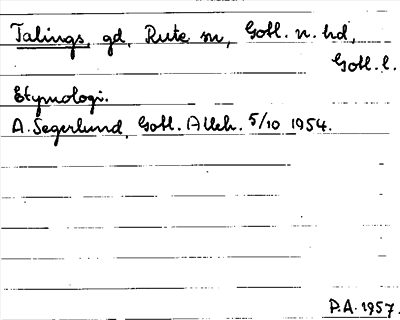 Talings, gd, Rute sn, Gotl. n. hd,
Gotl. l.
Etymologi.
A. Segerlund, Gotl. Alleh. 5/10 1954.
P.A. 1957.